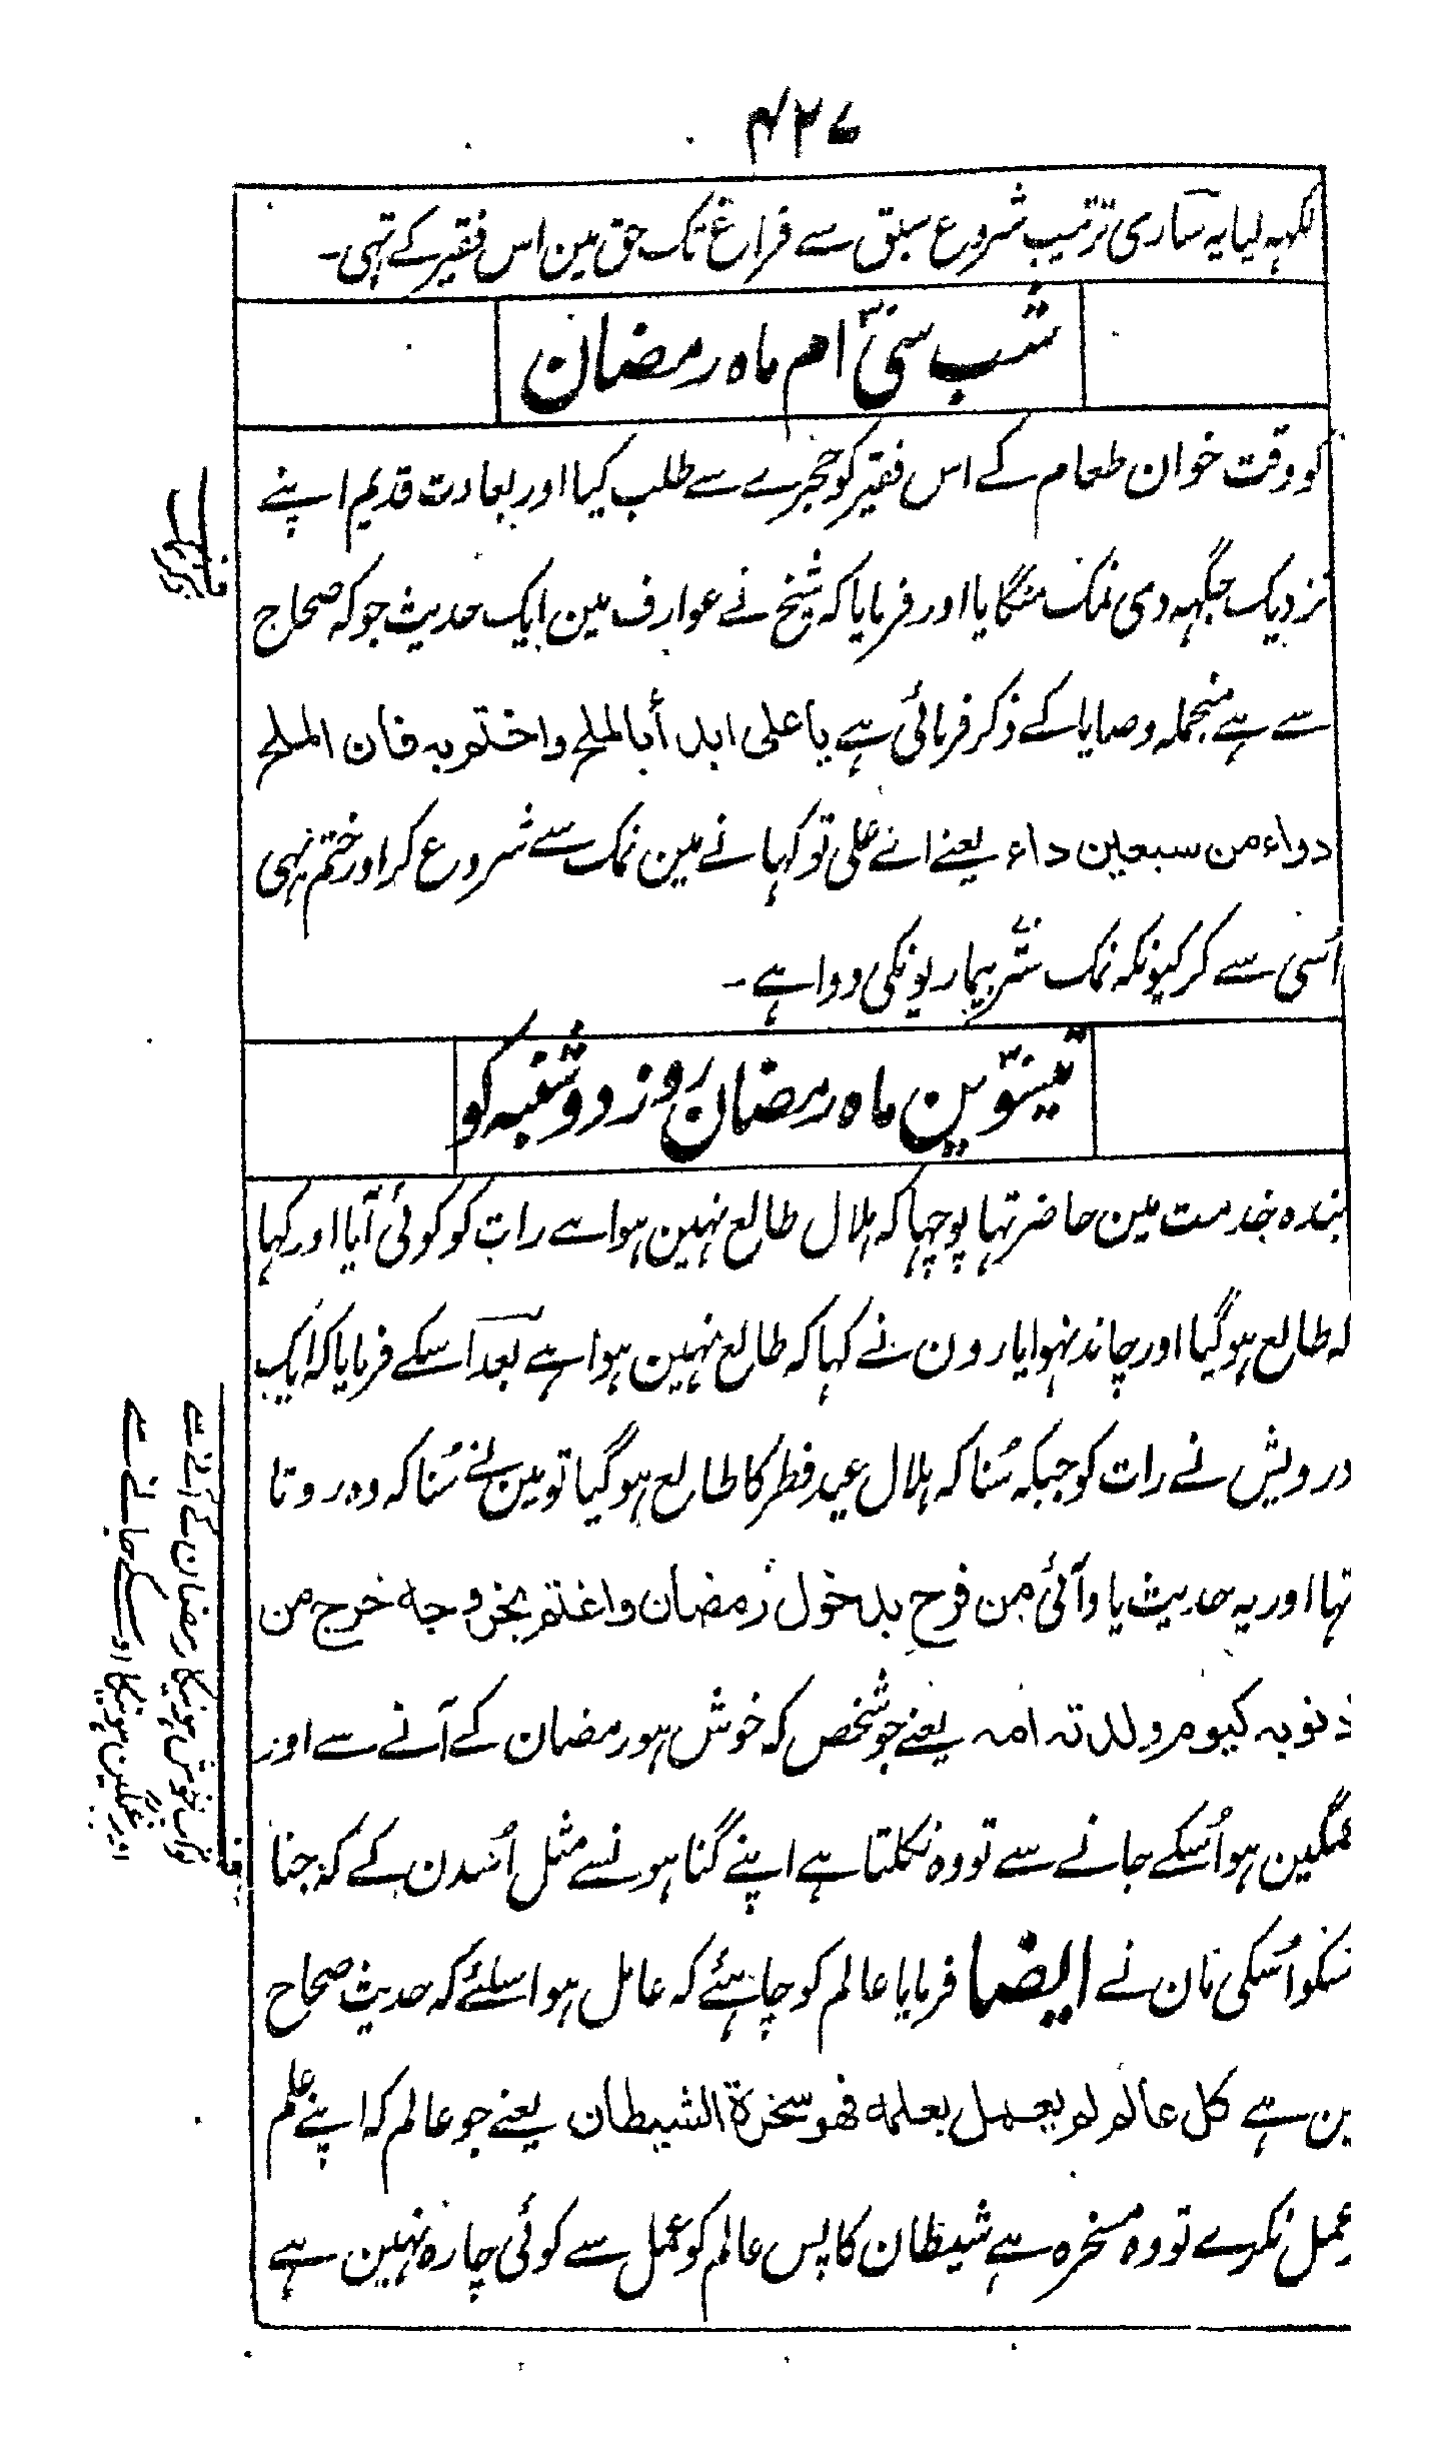 ۴۲۷
لکہہ لیا یہ ساری ترتیب شروع سبق سے فراغ تک حق مین اس فقیر کے تہی۔
شب سی ام ماہ رمضان
کو وقت خوان طعام کے اس فقیر کو حجرے سے طلب کیا اور بعادت قدیم اپنے
نزدیک جگہہ دی نمک منگایا اور فرمایا کہ شیخ نے عوارف مین ایک حدیث جو کہ صحاح
سے ہے منجملہ وصایا کے ذکر فرمائی ہے یا علی ابدأ بالملح واختم به فان الملح
دواء من سبعین داء یعنے اے علی تو کہانے مین نمک سے شروع کر اور ختم بہی
اُسی سے کر کیونکہ نمک ستّر بیماریونکی دوا ہے۔
تیسّوین ماہ رمضان روز دوشنبہ کو
بندہ خدمت مین حاضر تہا پوچہا کہ ہلال طالع نہین ہوا ہے رات کو کوئی آیا اور کہا
کہ طالع ہو گیا اور چاند نہوا یارون نے کہا کہ طالع نہین ہوا ہے بعد اسکے فرمایا کہ ایک
درویش نے رات کو جبکہ سُنا کہ ہلال عید فطر کا طالع ہو گیا تو مین نے سُنا کہ وہ روتا
تہا اور یہ حدیث یاد آئی من فرح بدخول رمضان واغتم بخروجه خرج من
ذنوبه کیوم ولدته امه یعنے جو شخص کہ خوش ہو رمضان کے آنے سے اور
غمگین ہو اُسکے جانے سے تو وہ نکلتا ہے اپنے گناہونسے مثل اُسدن کے کہ جنا
اُسکی مان نے ایضا فرمایا عالم کو چاہئے کہ عامل ہو اسلئے کہ حدیث صحاح
ین ہے کل عالم لم یعمل بعلمه فهو سخرة الشیطان یعنے جو عالم کہ اپنے علم
عمل نکرے تو وہ مسخرہ ہے شیطان کا پس عالم کو عمل سے کوئی چارہ نہین ہے
ثواب خوش ہونیکا رمضان کے آنے سے
اور غمگین ہونیکا اوسکے جانے سے